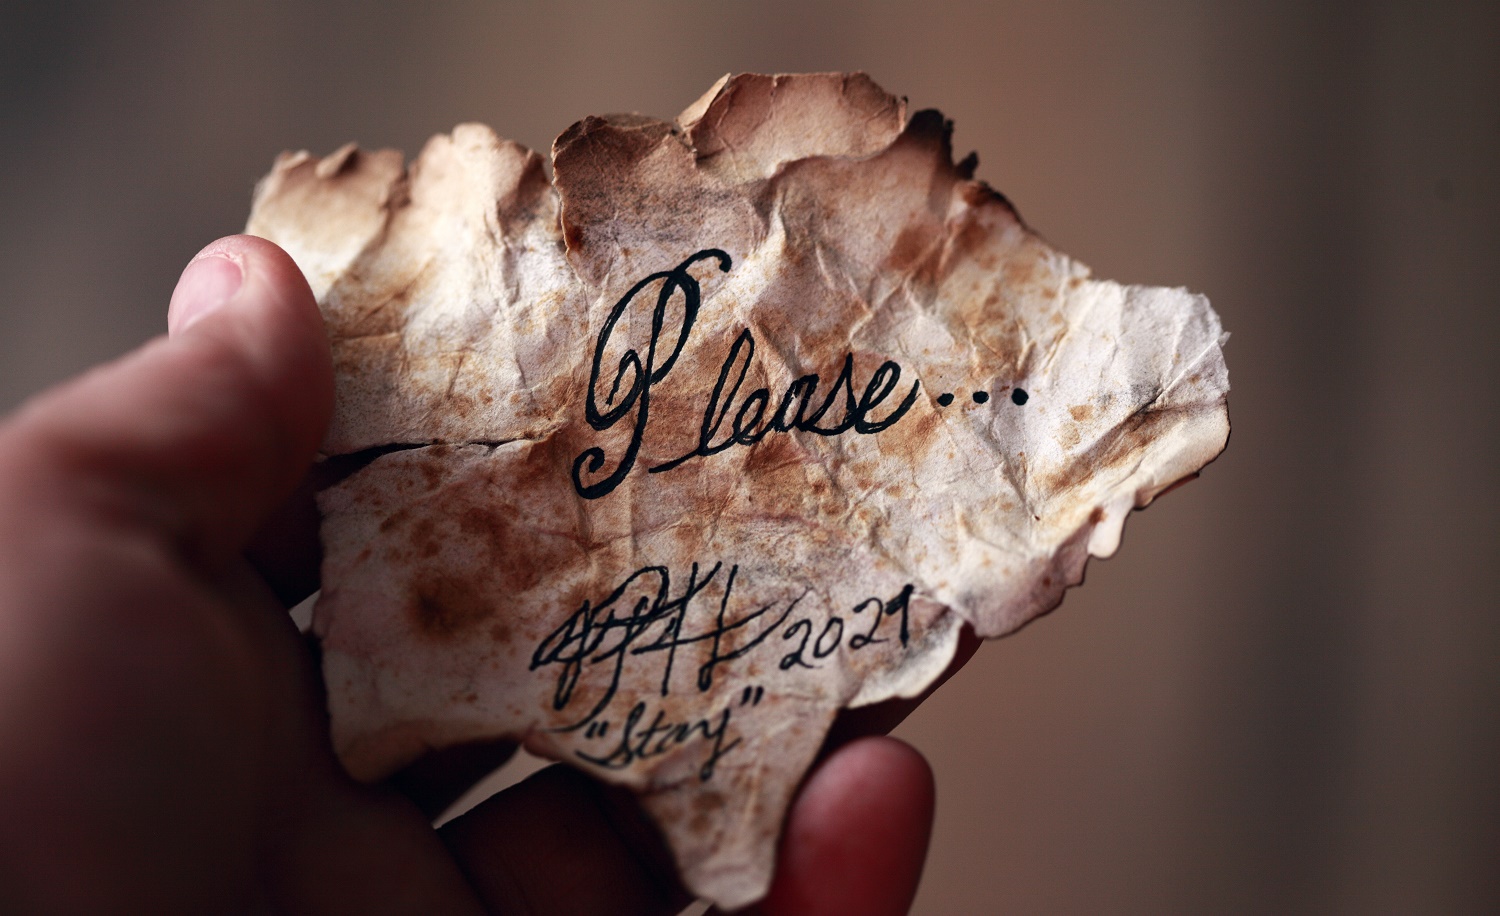 Please...
2021
"Stay"